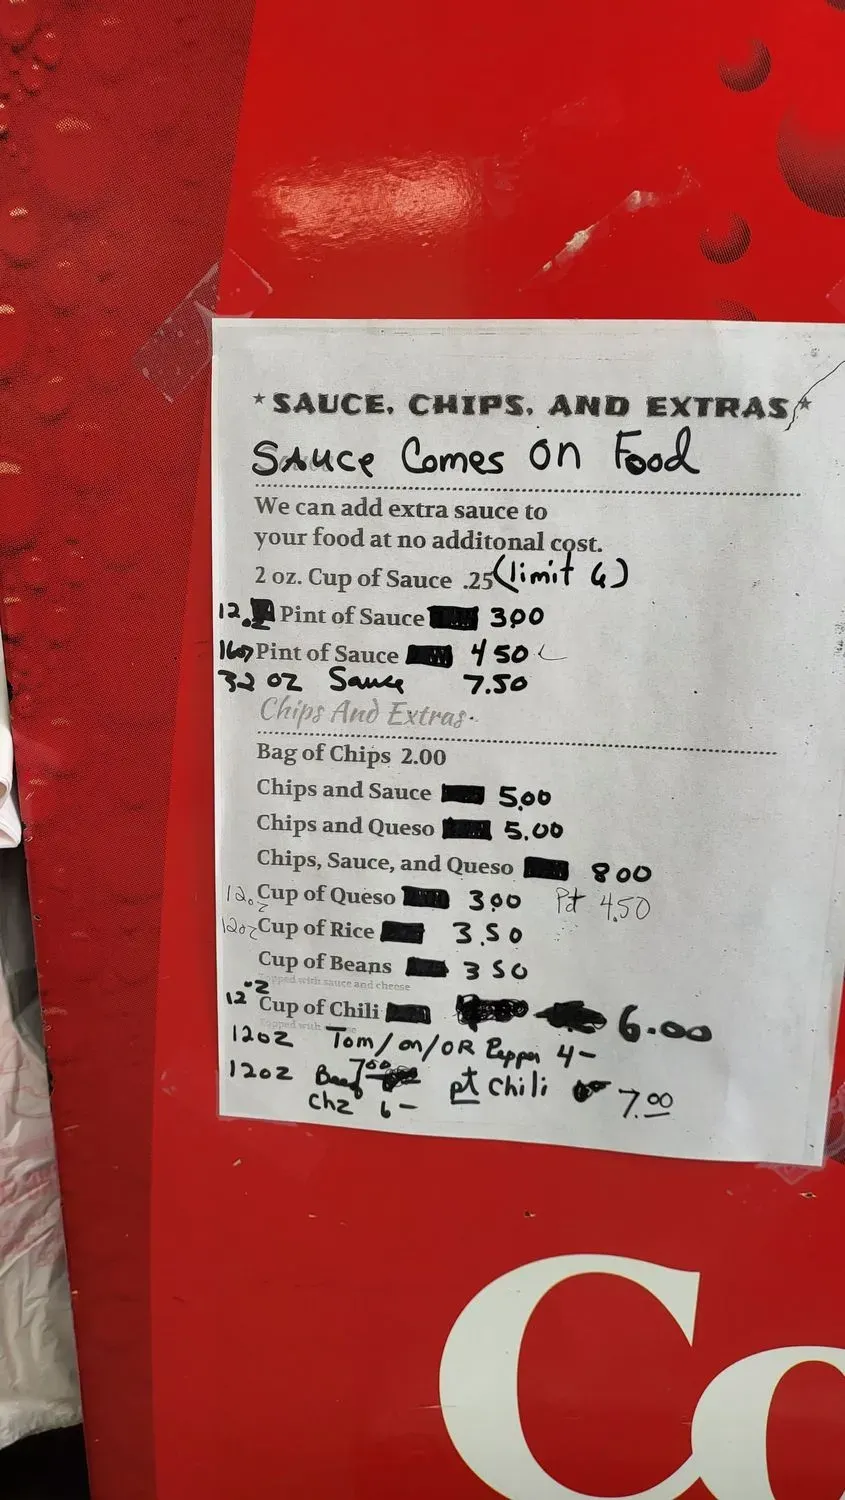 ★ SAUCE, CHIPS, AND EXTRAS ★
SAUCE Comes on Food
We can add extra sauce to
your food at no additonal cost.
2 oz. Cup of Sauce .25 (limit 6)
12 oz Pint of Sauce 3.00
16oz Pint of Sauce 4 50
32 oz Sauce 7.50
Chips And Extras
Bag of Chips 2.00
Chips and Sauce 5.00
Chips and Queso 5.00
Chips, Sauce, and Queso 8 00
12oz Cup of Queso 3.00 Pt 4.50
12oz Cup of Rice 3.50
Cup of Beans 3 50
Topped with sauce and cheese
12oz Cup of Chili 6.00
Topped with
12oz Tom/on/OR Pepper 4-
12oz Beef 7.00 pt Chili 7.00
Chz 6-
Co